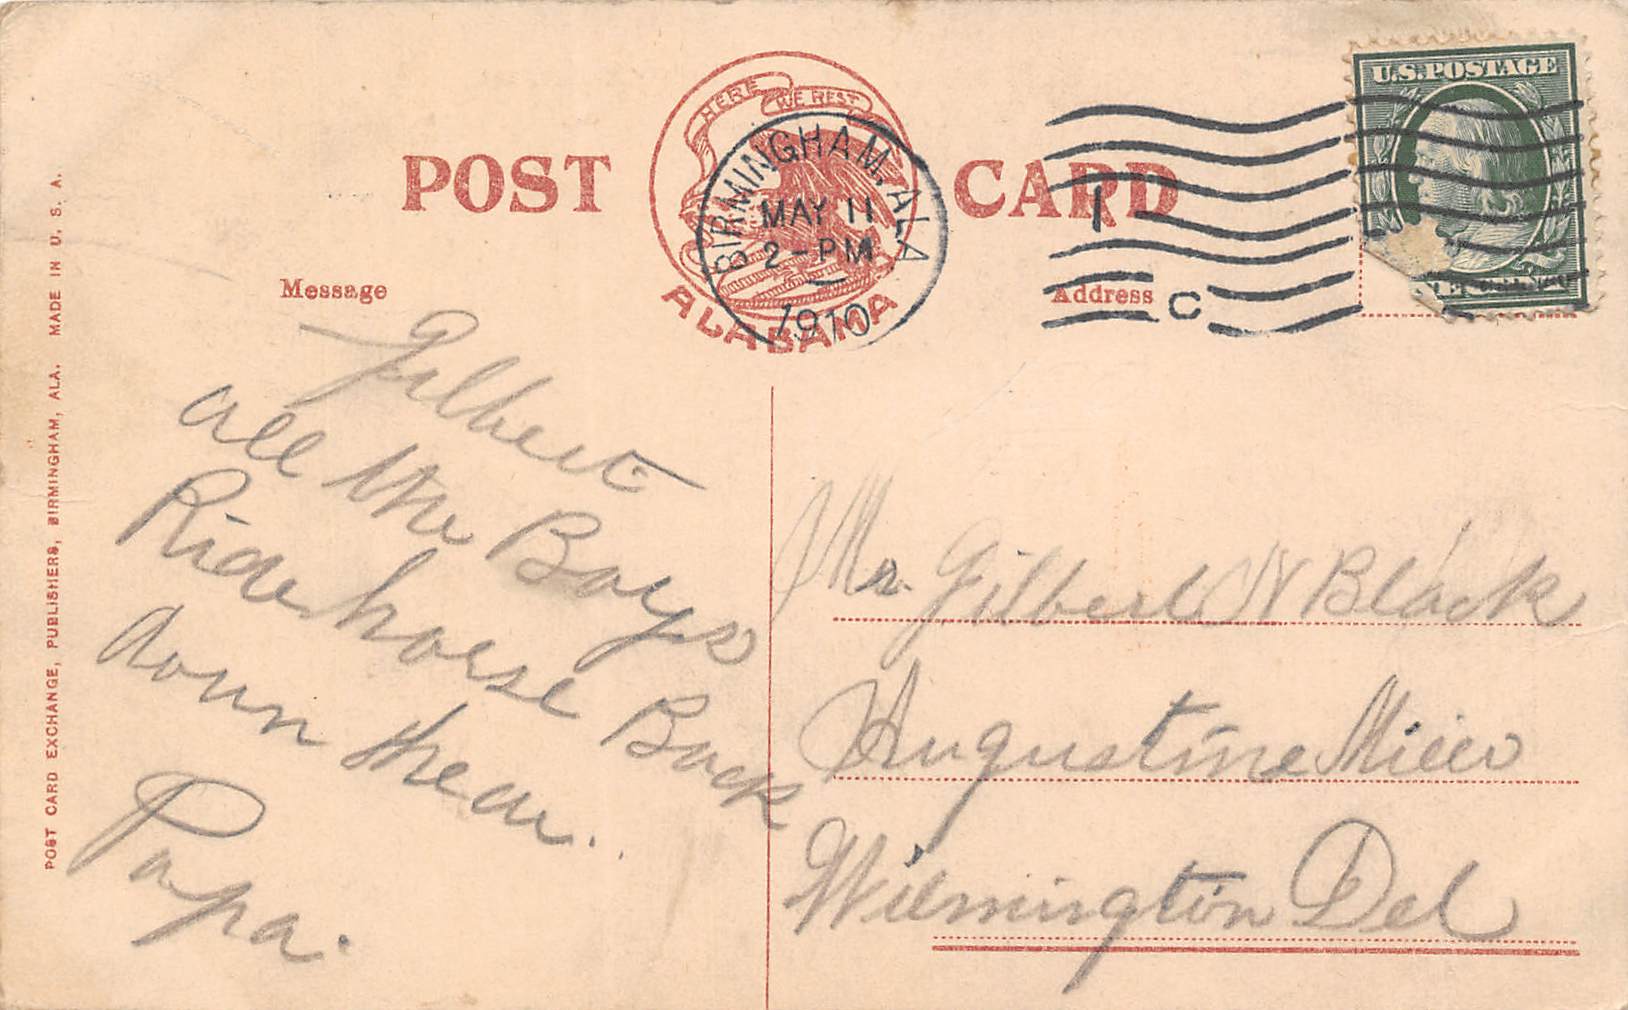 U.S. POSTAGE
HERE WE REST
POST CARD
BIRMINGHAM, ALA
MAY 11
2-PM
1910
ALABAMA
1
C
Message
Address
Gilbert
all the Boys
Ride horse Back
down hear.
Papa.
Mr. Gilbert W Black
Augustine Mills
Wilmington Del
POST CARD EXCHANGE, PUBLISHERS, BIRMINGHAM, ALA. MADE IN U. S. A.